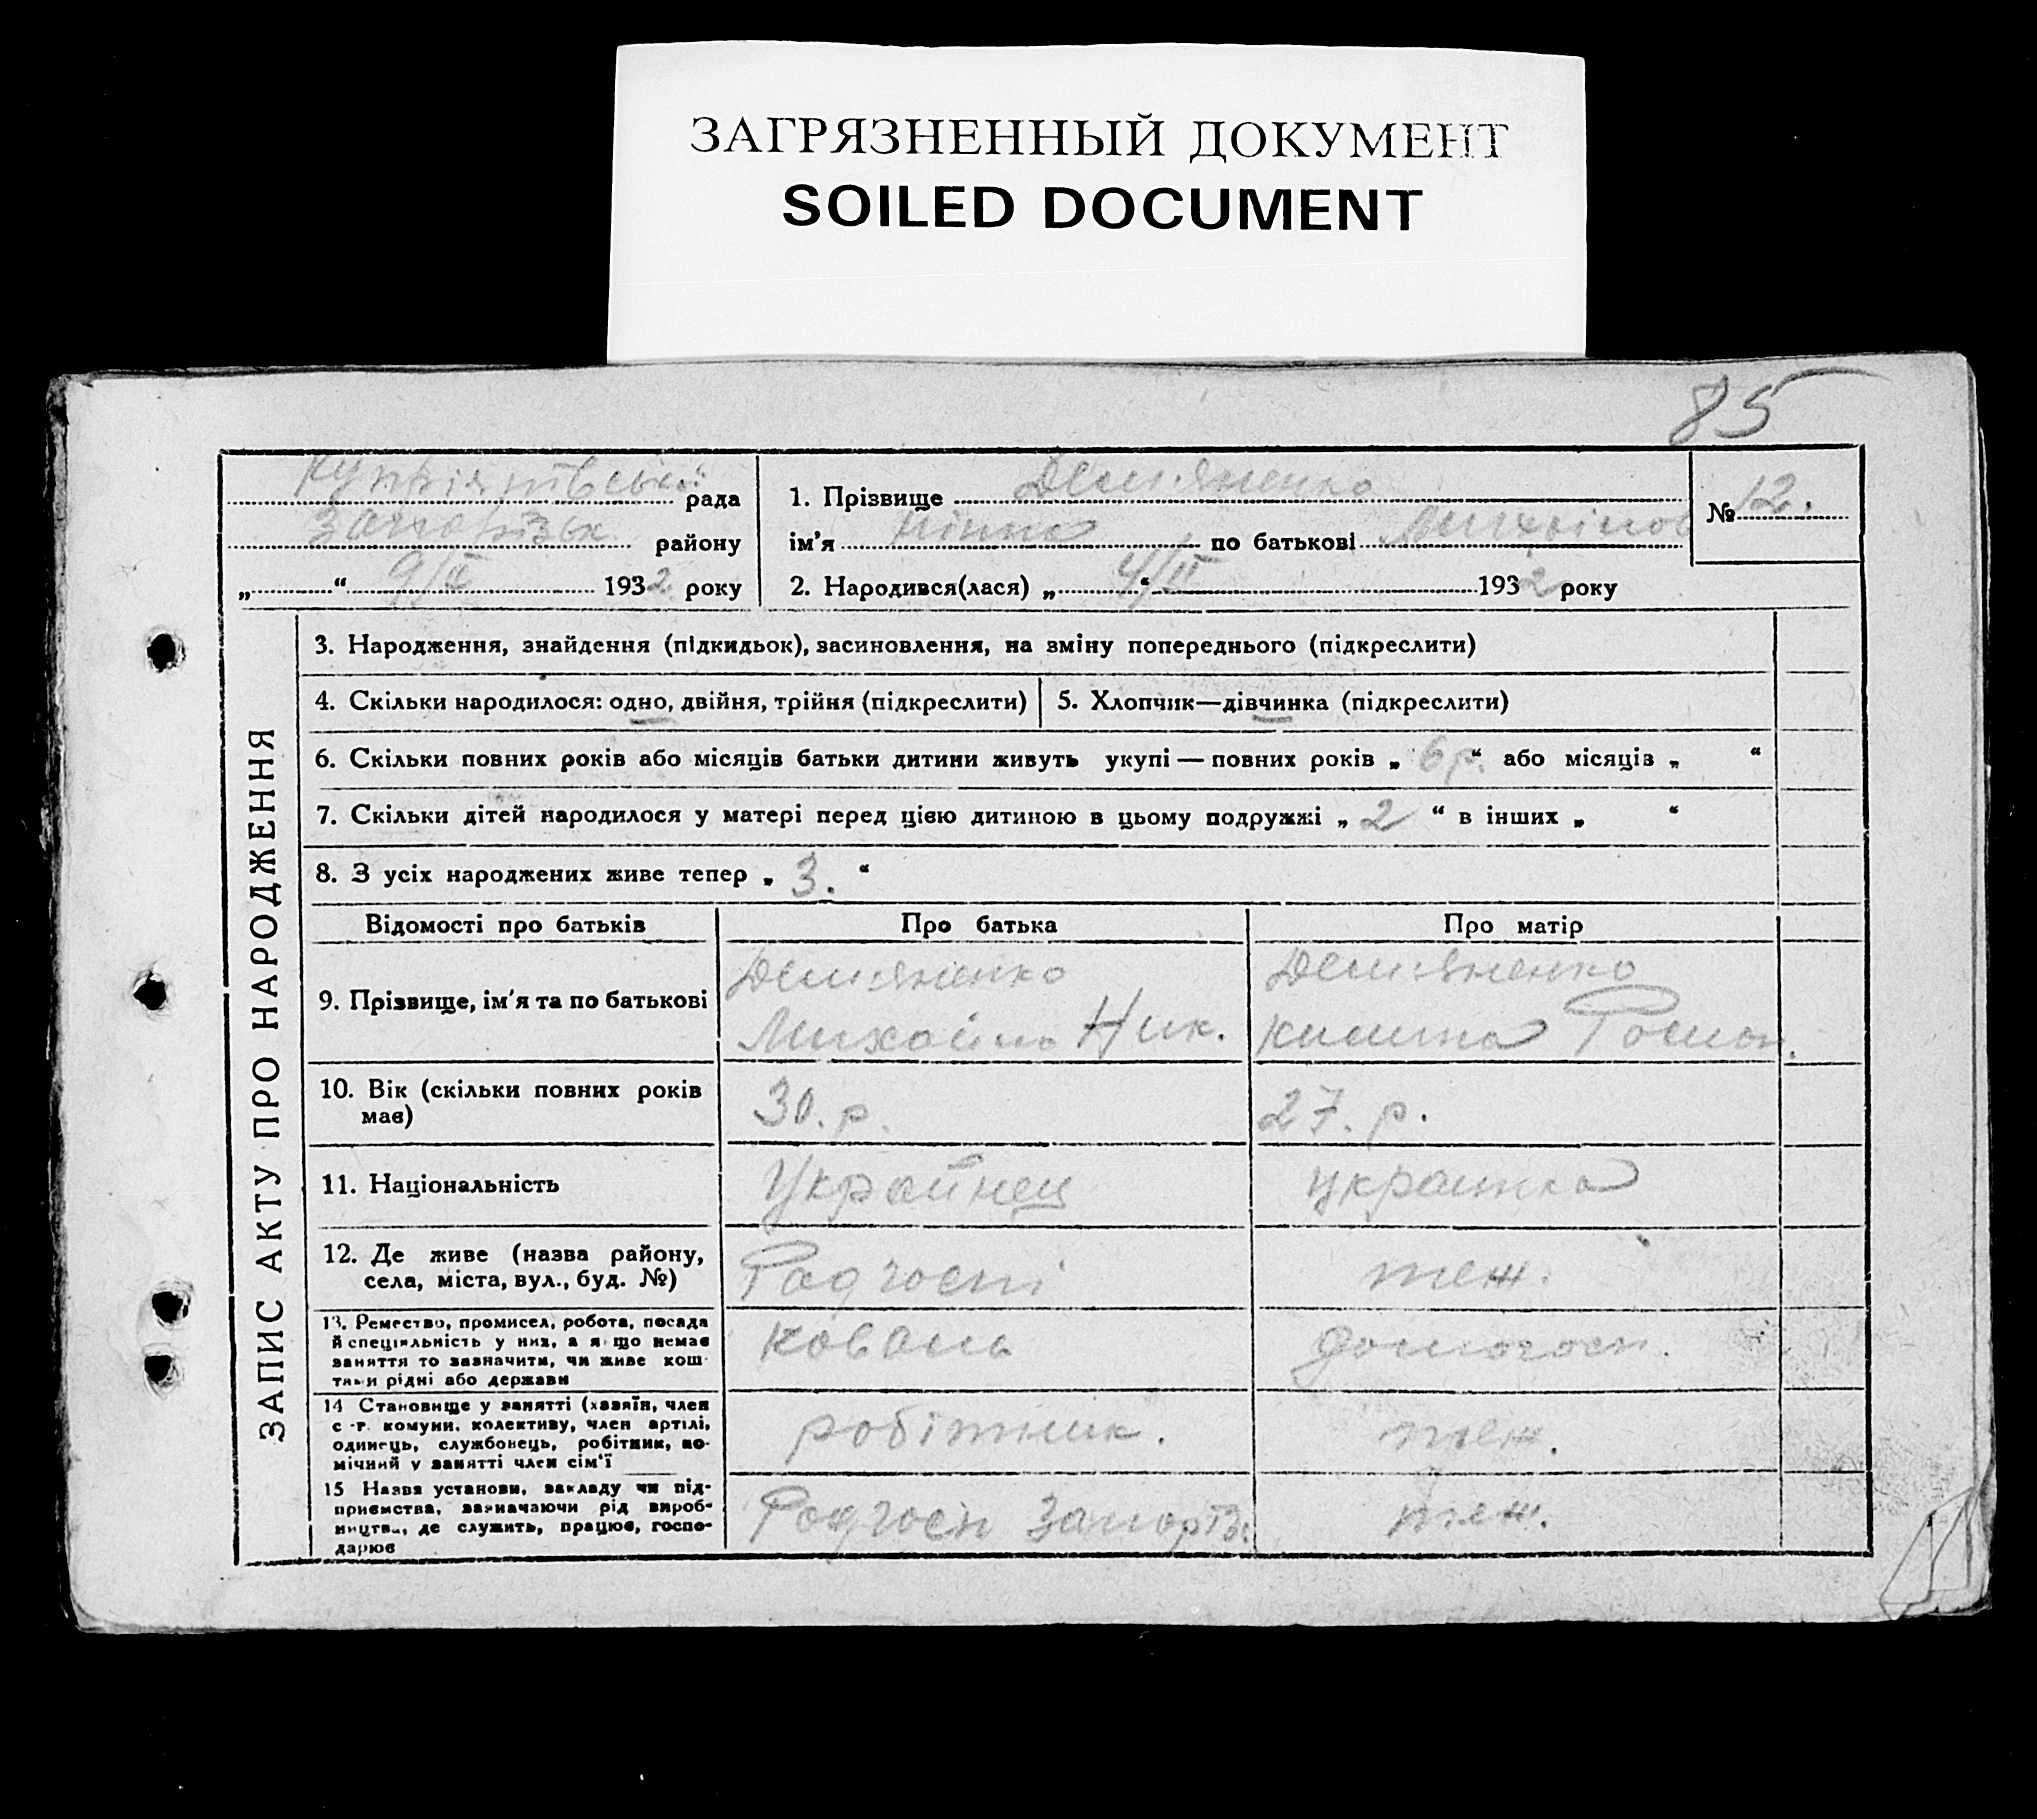 ЗАГРЯЗНЕННЫЙ ДОКУМЕНТ
SOILED DOCUMENT
85
Купріянівської рада
Запорізьк району
„ “ 9/II 1932 року
1. Прізвище Демяненко
ім’я Нінна по батькові Михайлов
2. Народився(лася) „ 4/II “ 1932 року
№ 12.
ЗАПИС АКТУ ПРО НАРОДЖЕННЯ
3. Народження, знайдення (підкидьок), засиновлення, на зміну попереднього (підкреслити)
4. Скільки народилося: одно, двійня, трійня (підкреслити) 5. Хлопчик—дівчинка (підкреслити)
6. Скільки повних років або місяців батьки дитини живуть укупі — повних років „ 6 р. “ або місяців „ “
7. Скільки дітей народилося у матері перед цією дитиною в цьому подружжі „ 2 “ в інших „ “
8. З усіх народжених живе тепер „ 3. “
Відомості про батьків Про батька Про матір
9. Прізвище, ім’я та по батькові
Демяненко
Михайло Ник.
Демяненко
Роман.
10. Вік (скільки повних років
має)
30. р.
27. р.
11. Національність Украйнец украинка
12. Де живе (назва району,
села, міста, вул., буд. №)
Радгоспі
теж.
13. Ремество, промисел, робота, посада
й спеціяльність у них, а якщо немає
заняття то зазначити, чи живе кош-
тами рідні або держави
Коваль
домогосп.
14 Становище у занятті (хазяїн, член
с.-г. комуни, колективу, член артілі,
одинець, службовець, робітник, по-
мічний у занятті член сім’ї
робітник.
теж.
15 Назва установи, закладу чи під-
приємства, зазначаючи рід вироб-
ництва, де служить, працює, госпо-
дарює
Радгосп Запоріз.
теж.